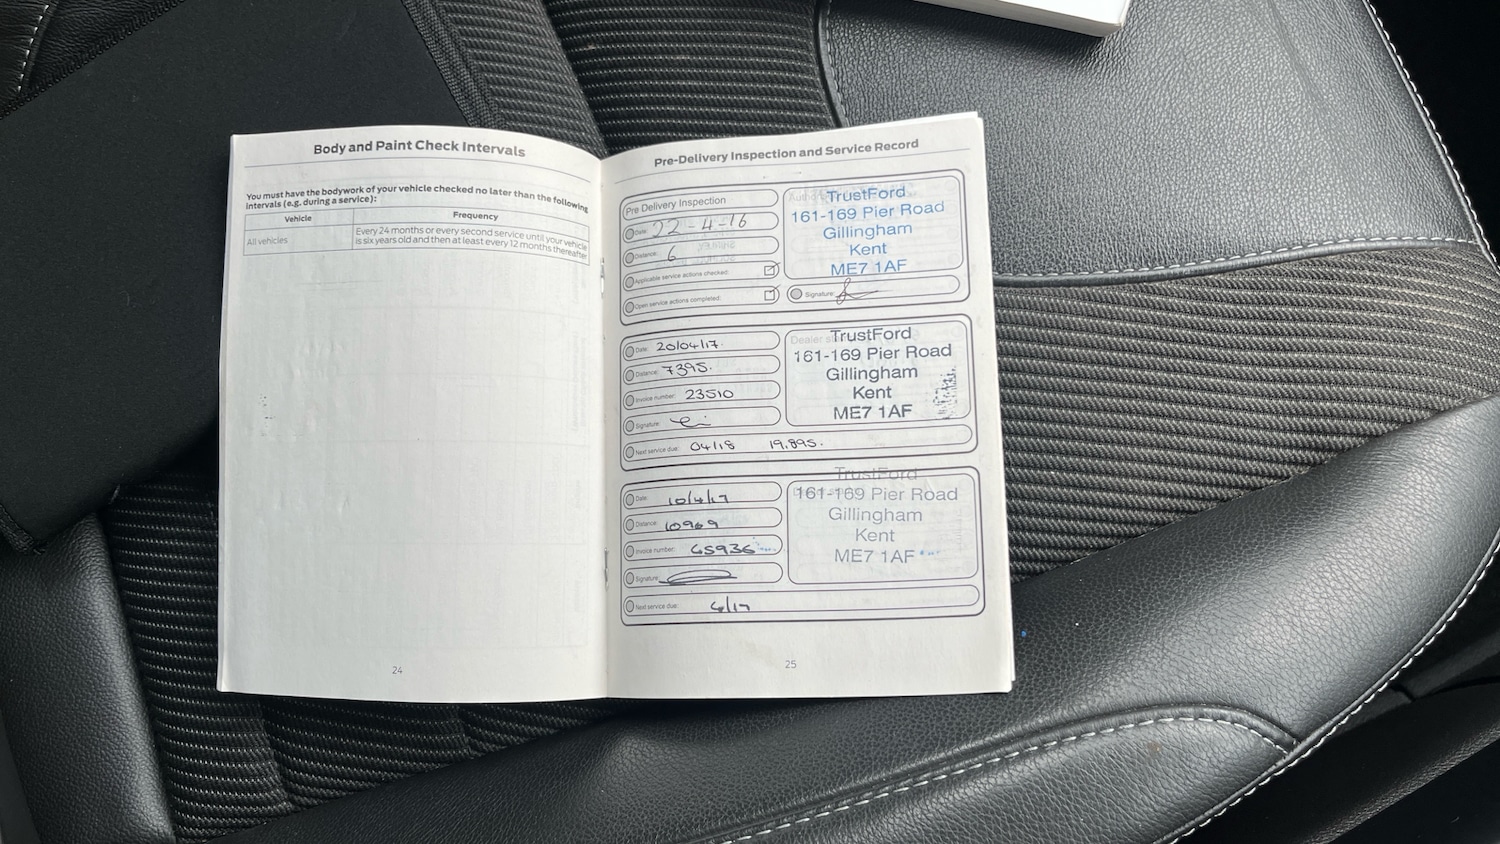 Body and Paint Check Intervals
You must have the bodywork of your vehicle checked no later than the following
intervals (e.g. during a service):
Vehicle Frequency
All vehicles Every 24 months or every second service until your vehicle
is six years old and then at least every 12 months thereafter
24
Pre-Delivery Inspection and Service Record
Pre Delivery Inspection
Date: 22-4-16
Distance: 6
Applicable service actions checked:
Open service actions completed:
TrustFord
161-169 Pier Road
Gillingham
Kent
ME7 1AF
Signature:
Date: 20/04/17.
Distance: 7395.
Invoice number: 23510
Signature:
Next service due: 04/18 19,895.
Dealer
TrustFord
161-169 Pier Road
Gillingham
Kent
ME7 1AF
Date: 10/4/17
Distance: 10969
Invoice number: 65936
Signature:
Next service due: /17
TrustFord
161-169 Pier Road
Gillingham
Kent
ME7 1AF
25